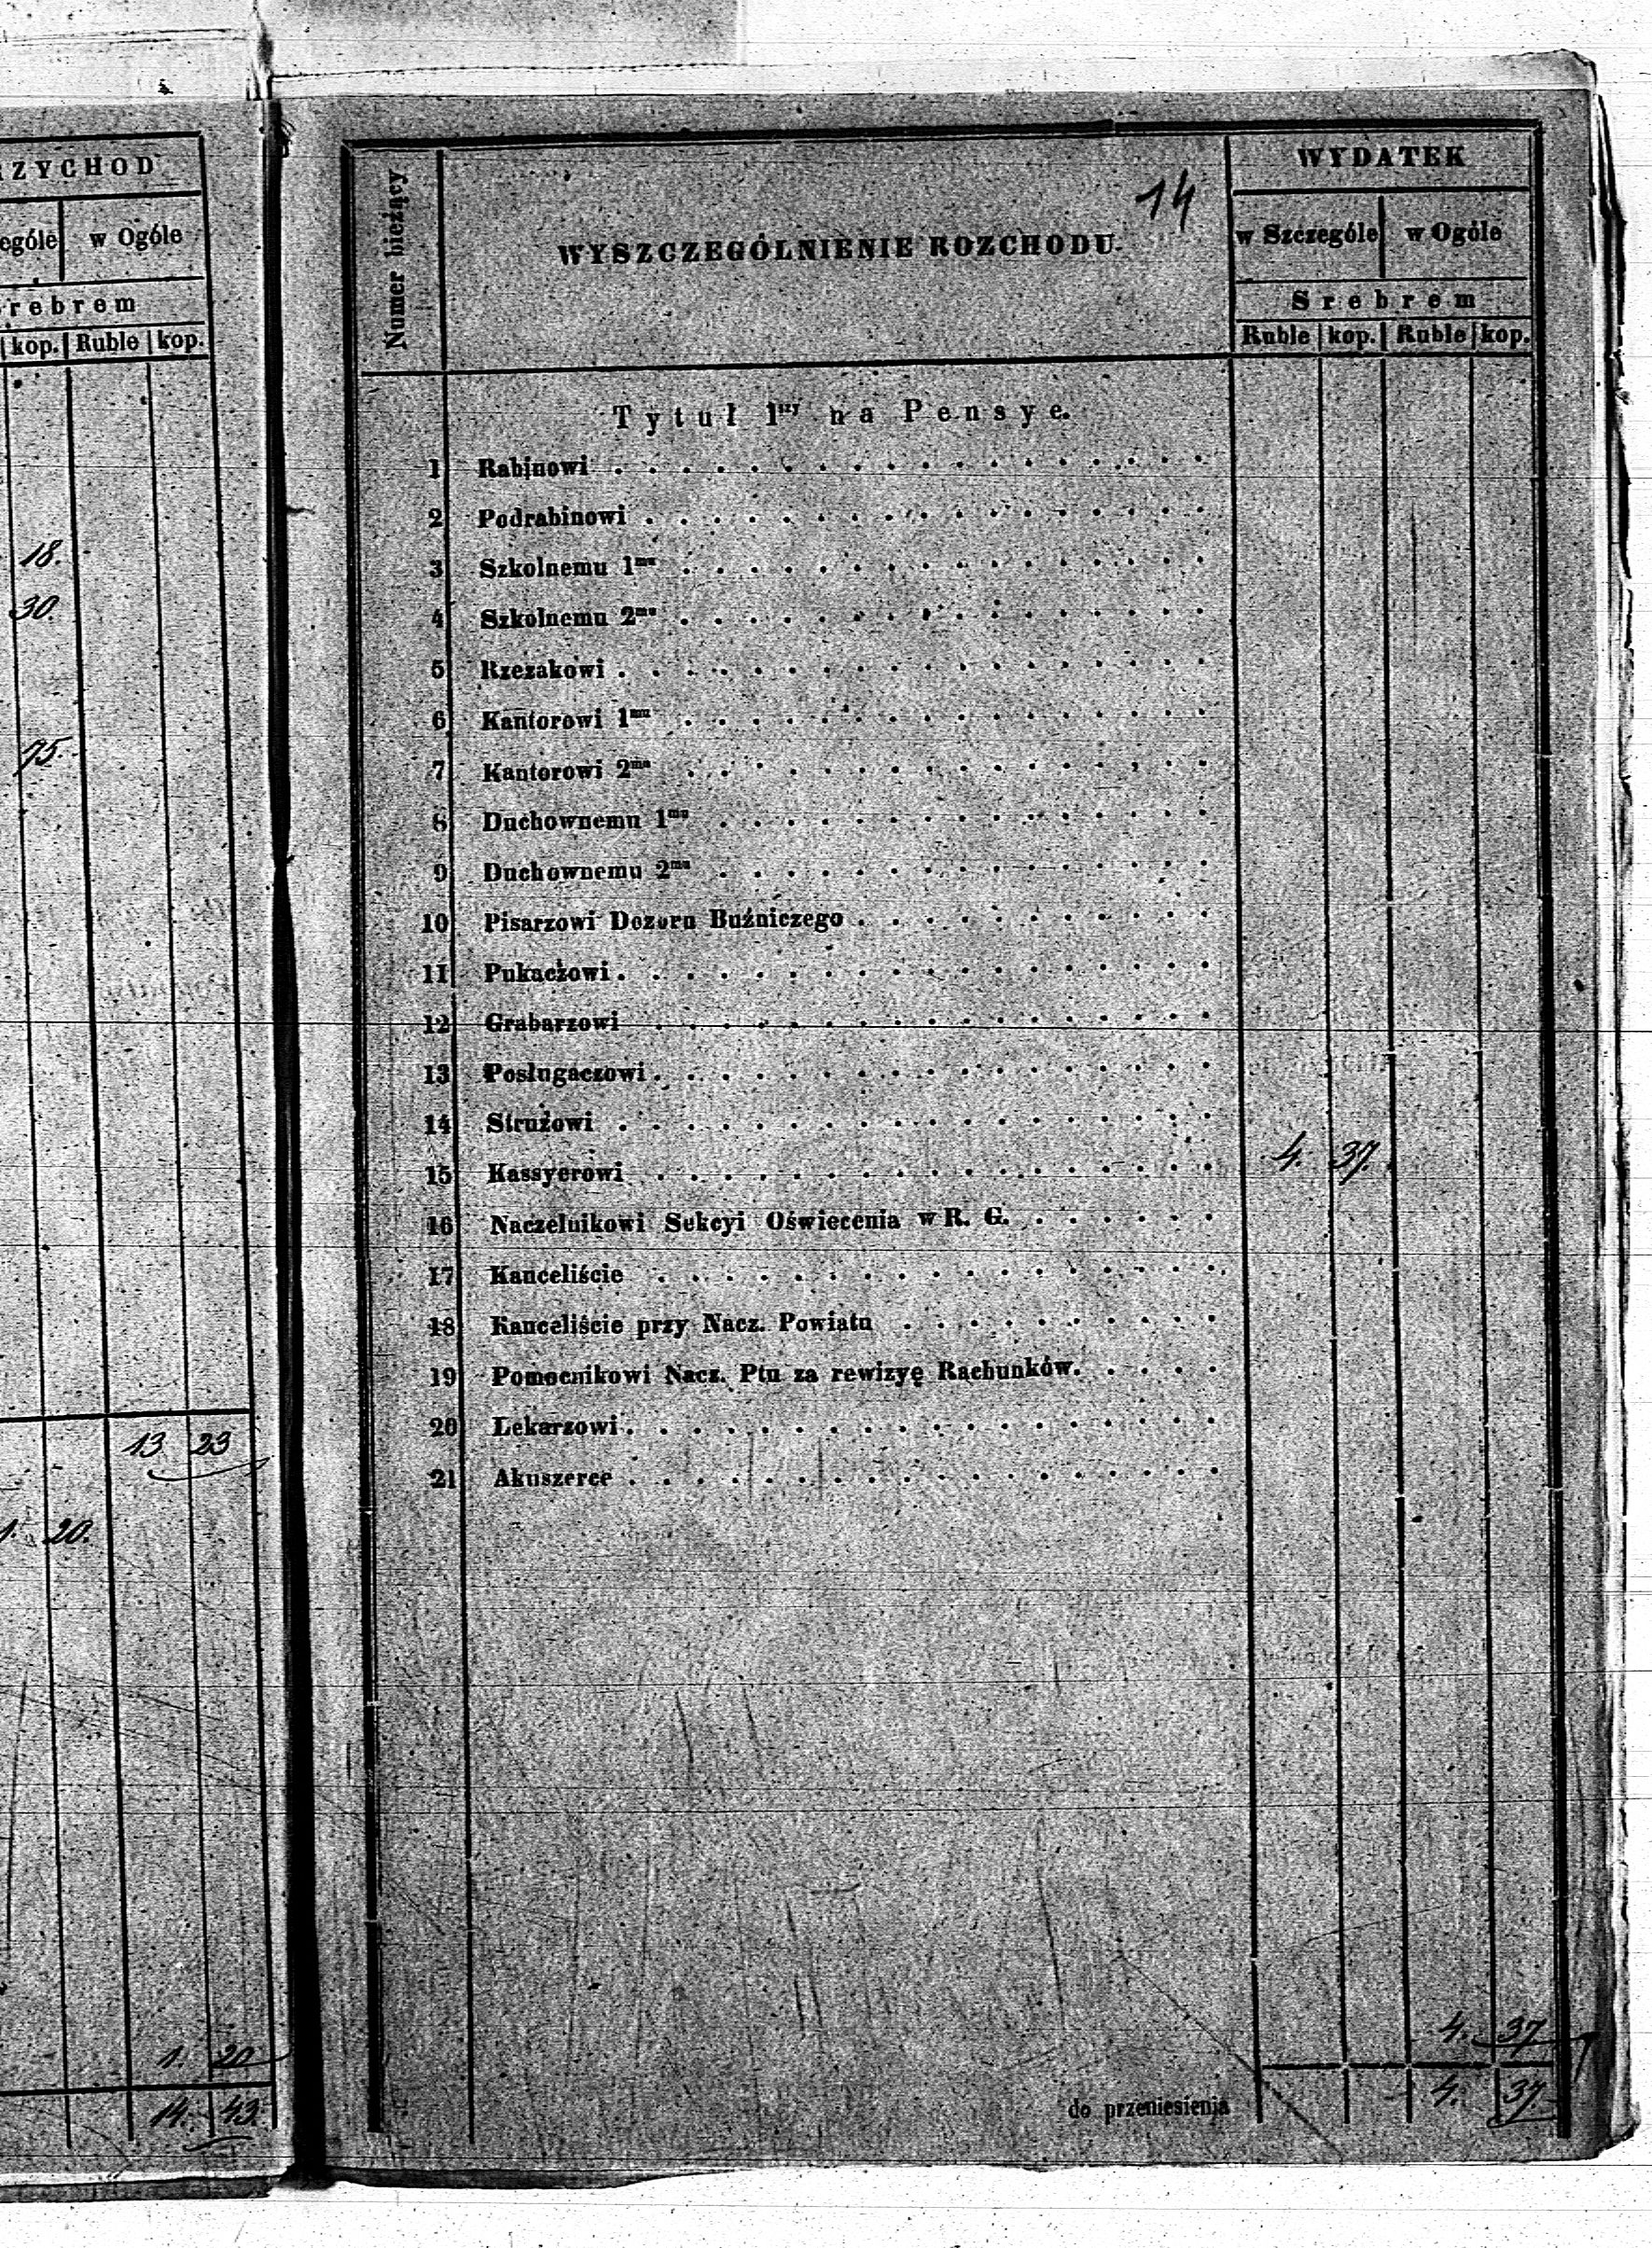 RZYCHOD
ególe w Ogóle
rebrem
kop. Ruble kop.
18.
30.
75.
13 23
1. 20.
1. 20
14. 43.
Numer bieżący
WYSZCZEGÓLNIENIE ROZCHODU.
14
WYDATEK
w Szczególe w Ogóle
Srebrem
Ruble kop. Ruble kop.
Tytuł 1szy na Pensye.
1 Rabinowi
2 Podrabinowi
3 Szkolnemu 1mu
4 Szkolnemu 2mu
5 Rzezakowi
6 Kantorowi 1mu
7 Kantorowi 2mu
8 Duchownemu 1mu
9 Duchownemu 2mu
10 Pisarzowi Dozoru Buźniczego
11 Pukaczowi
12 Grabarzowi
13 Posługaczowi
14 Strużowi
15 Kassyerowi 4. 37.
16 Naczelnikowi Sekcyi Oświecenia w R. G.
17 Kanceliście
18 Kanceliście przy Nacz. Powiatu
19 Pomocnikowi Nacz. Ptu za rewizyę Rachunków.
20 Lekarzowi
21 Akuszerce
4. 37
do przeniesienia 4. 37.